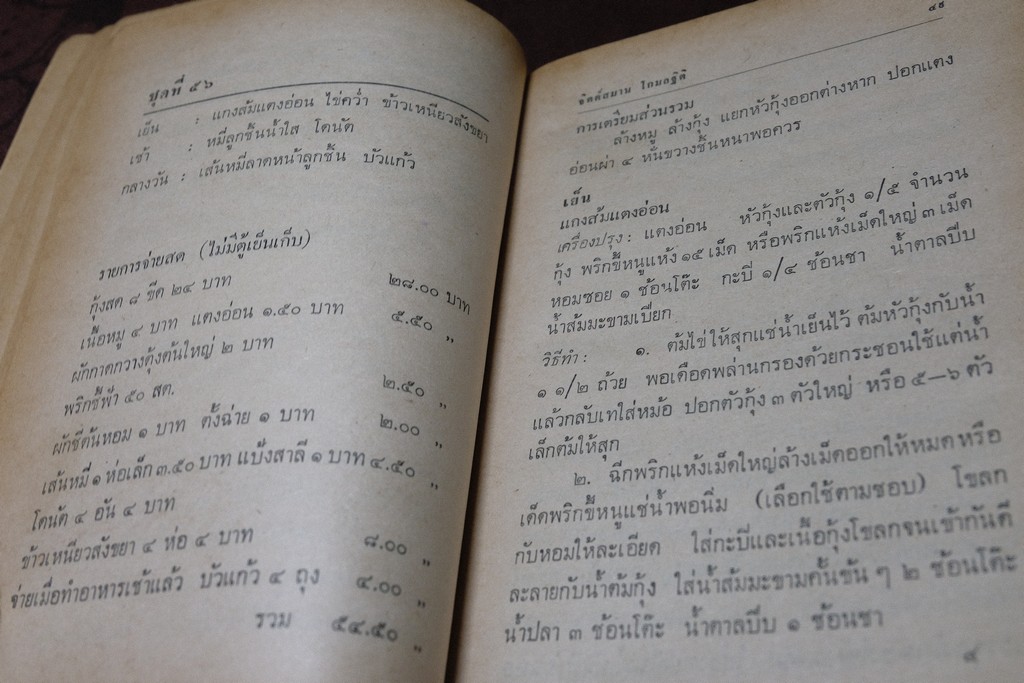 ชุดที่ ๕๖
เย็น : แกงส้มแตงอ่อน ไข่คว่ำ ข้าวเหนียวสังขยา
เช้า : หมี่ลูกชิ้นน้ำใส โดนัด
กลางวัน : เส้นหมี่ลาดหน้าลูกชิ้น บัวแก้ว
รายการจ่ายสด (ไม่มีตู้เย็นเก็บ)
กุ้งสด ๘ ขีด ๒๔ บาท
เนื้อหมู ๔ บาท แตงอ่อน ๑.๕๐ บาท ๒๘.๐๐ บาท
ผักกาดกวางตุ้งต้นใหญ่ ๒ บาท ๕.๕๐ „
พริกชี้ฟ้า ๕๐ สต.
ผักชีต้นหอม ๑ บาท ตั้งฉ่าย ๑ บาท ๒.๕๐ „
เส้นหมี่ ๑ ห่อเล็ก ๓.๕๐ บาท แป้งสาลี ๑ บาท ๒.๐๐ „
โดนัด ๔ อัน ๔ บาท ๔.๕๐ „
ข้าวเหนียวสังขยา ๔ ห่อ ๔ บาท
จ่ายเมื่อทำอาหารเช้าแล้ว บัวแก้ว ๔ ถุง ๘.๐๐ „
๔.๐๐ „
รวม ๕๔.๕๐ „
๔๕
จิตต์สมาน โกมลฐิติ
การเตรียมส่วนรวม
ล้างหมู ล้างกุ้ง แยกหัวกุ้งออกต่างหาก ปอกแตง
อ่อนผ่า ๔ หั่นขวางชิ้นหนาพอควร
เย็น
แกงส้มแตงอ่อน
เครื่องปรุง : แตงอ่อน หัวกุ้งและตัวกุ้ง ๑/๕ จำนวน
กุ้ง พริกขี้หนูแห้ง ๑๕ เม็ด หรือพริกแห้งเม็ดใหญ่ ๓ เม็ด
หอมซอย ๑ ช้อนโต๊ะ กะปิ ๑/๔ ช้อนชา น้ำตาลปีบ
น้ำส้มมะขามเปียก
วิธีทำ : ๑. ต้มไข่ให้สุกแช่น้ำเย็นไว้ ต้มหัวกุ้งกับน้ำ
๑ ๑/๒ ถ้วย พอเดือดพล่านกรองด้วยกระชอนใช้แต่น้ำ
แล้วกลับเทใส่หม้อ ปอกตัวกุ้ง ๓ ตัวใหญ่ หรือ ๕—๖ ตัว
เล็กต้มให้สุก
๒. ฉีกพริกแห้งเม็ดใหญ่ล้างเม็ดออกให้หมด หรือ
เด็ดพริกขี้หนูแช่น้ำพอนิ่ม (เลือกใช้ตามชอบ) โขลก
กับหอมให้ละเอียด ใส่กะปิและเนื้อกุ้งโขลกจนเข้ากันดี
ละลายกับน้ำต้มกุ้ง ใส่น้ำส้มมะขามคั้นข้น ๆ ๒ ช้อนโต๊ะ
น้ำปลา ๓ ช้อนโต๊ะ น้ำตาลปีบ ๑ ช้อนชา